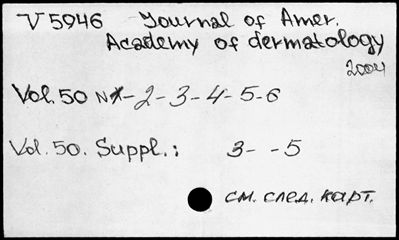 V 5946 Journal of Amer.
Academy of dermatology
2004
Vol. 50 N 1-2-3-4-5-6
Vol. 50. Suppl.: 3- -5
см. след. карт.